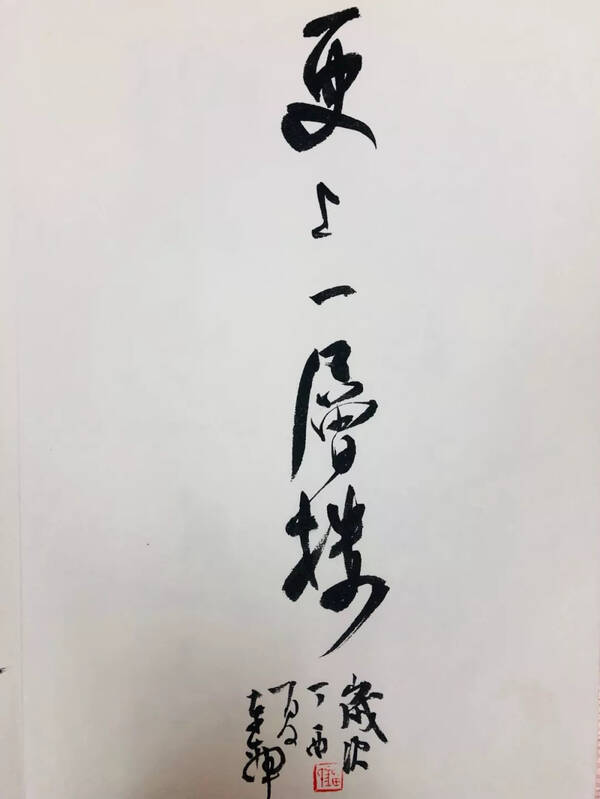 更上一層樓
歲次
丁酉
夏